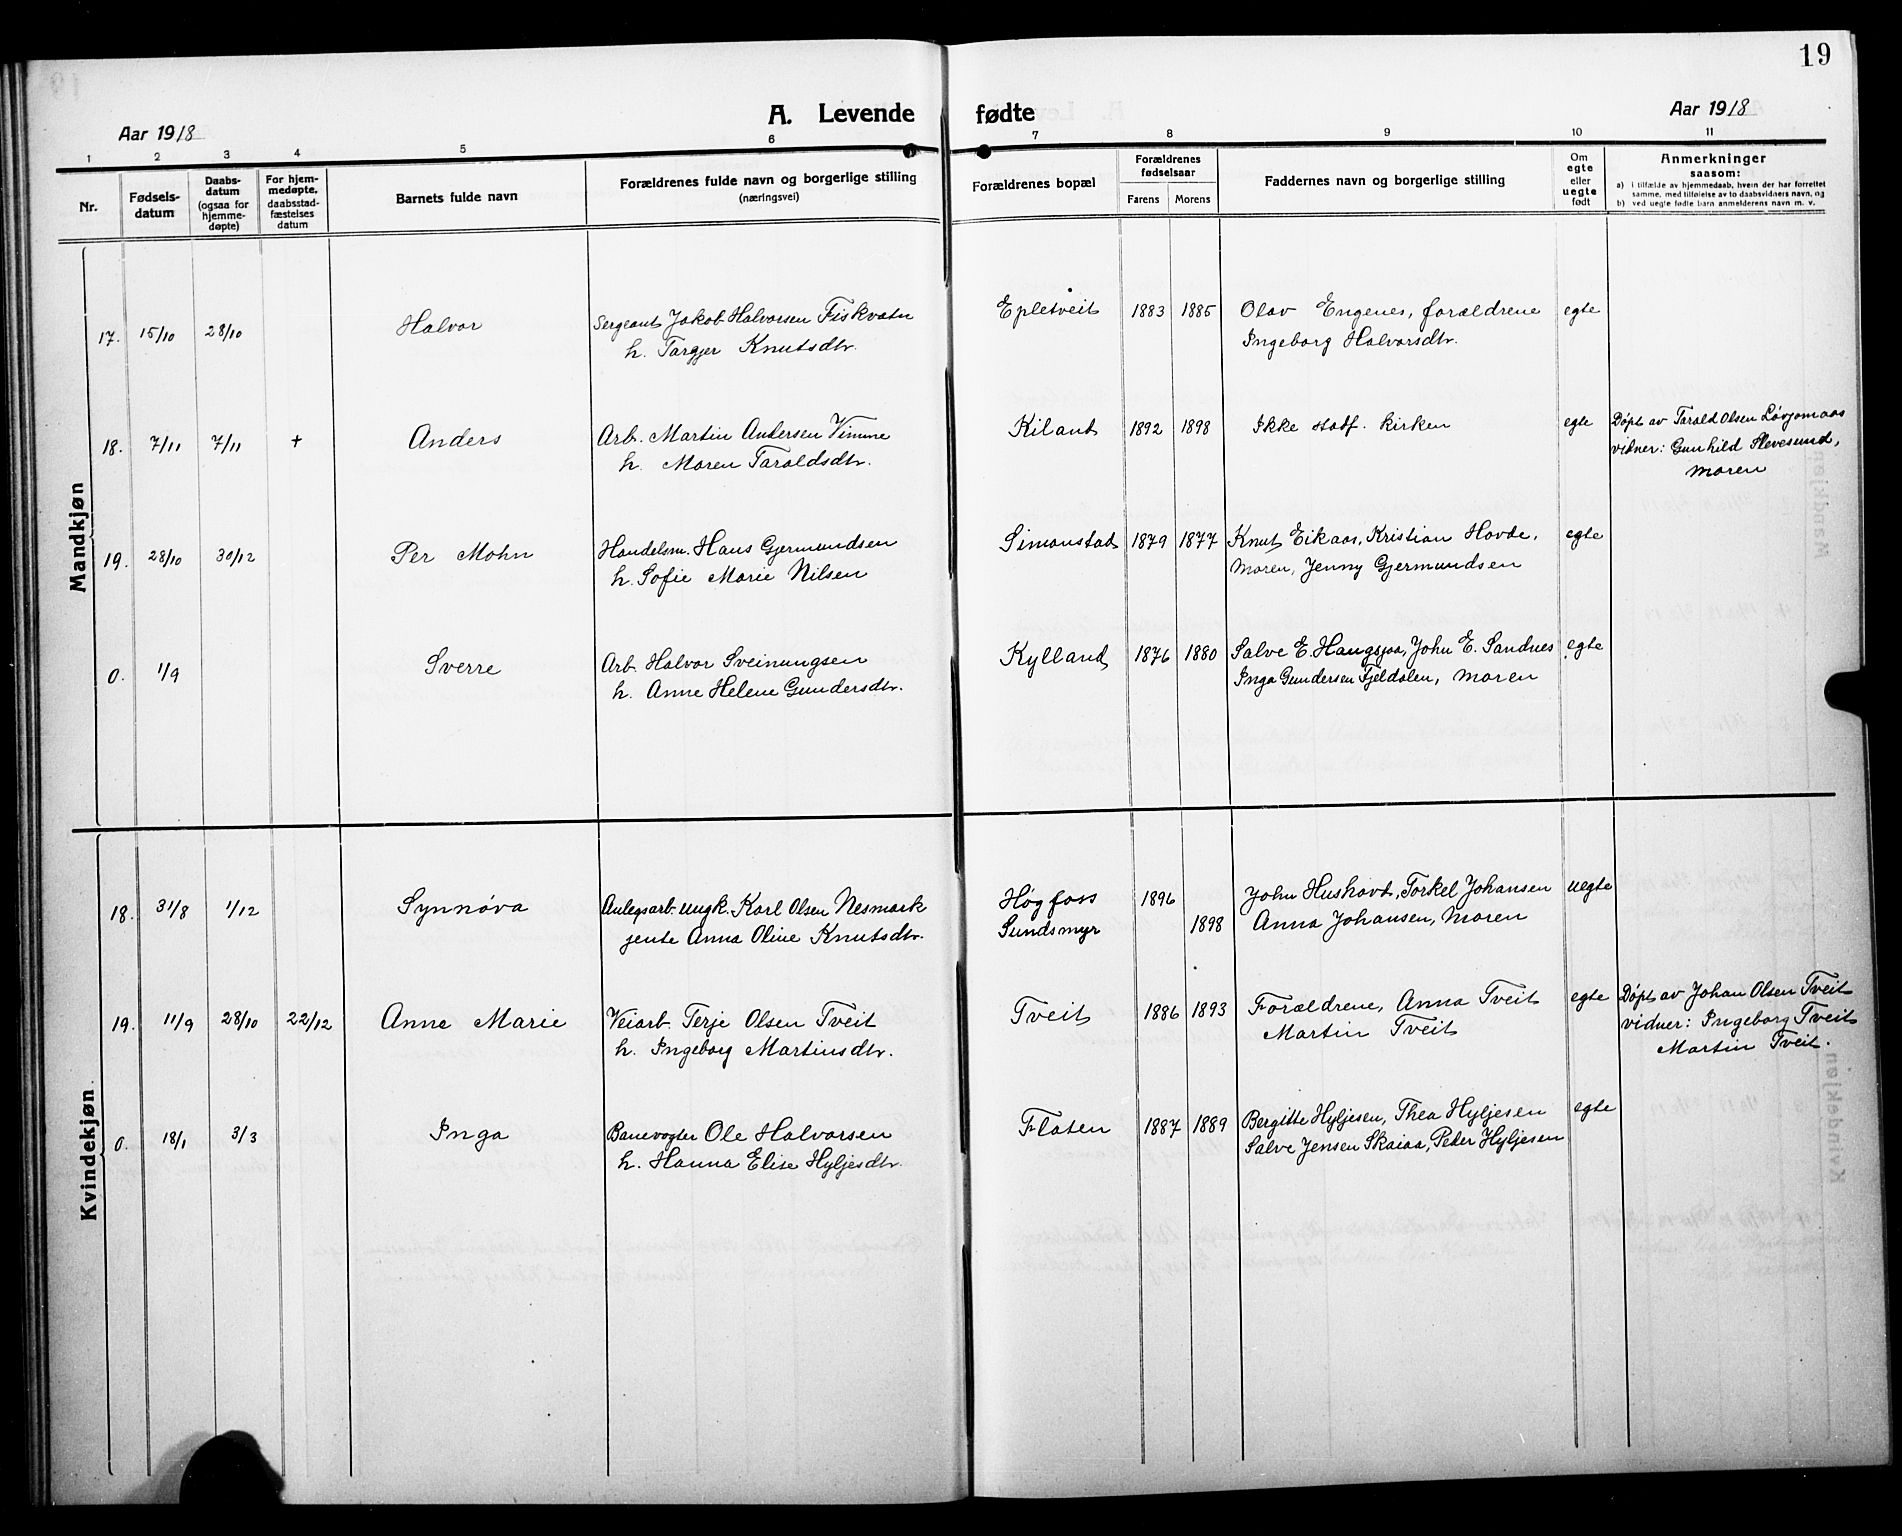 19
A. Levende fødte
Aar 1918
Aar 1918
1 2 3 4 5 6 7 8 9 10 11
Nr.
Fødsels-
datum
Daabs-
datum
(ogsaa for
hjemme-
døpte)
For hjem-
medøpte,
daabsstad-
fæstelses
datum
Barnets fulde navn
Forældrenes fulde navn og borgerlige stilling
(næringsvei)
Forældrenes bopæl
Forældrenes
fødselsaar
Farens
Morens
Faddernes navn og borgerlige stilling
Om
egte
eller
uegte
født
Anmerkninger
saasom:
a) i tilfælde av hjemmedaab, hvem der har forrettet
samme, med tilføielse av to daabsvidners navn, og
b) ved uegte fødte barn anmelderens navn m. v.
Mandkjøn
17. 15/10 28/10 Halvor Sergeant Jakob Halvorsen Fiskvatn Epletveit 1883 1885 Olav Engenes, forældrene egte
h. Targjer Knutsdtr. Ingeborg Halvorsdtr.
18. 7/11 7/11 + Anders Arb. Martin Andersen Vimme Kiland 1892 1898 Ikke stadf. kirken egte Døpt av Tarald Olsen Løvjomaas
h. Maren Taraldsdtr. vidner: Gunhild Slevesund,
moren
19. 28/10 30/12 Per Mohn Handelsm. Hans Gjermundsen Simonstad 1879 1877 Knut Eikaas, Kristian Hovde, egte
h. Sofie Marie Nilsen moren, Jenny Gjermundsen
0. 1/9 Sverre Arb. Halvor Sveinungsen Kylland 1876 1880 Salve E. Haugsjaa, John E. Sandnes egte
h. Anne Helene Gundersdtr. Inga Gundersen Fjeldalen, moren
Kvindekjøn
18. 31/8 1/12 Synnøva Anlegsarb. ungk. Karl Olsen Nesmark Høgfoss 1896 John Hushovd, Torkel Johansen uegte
jente Anna Oline Knutsdtr. Sundsmyr 1898 Anna Johansen, moren
19. 11/9 28/10 22/12 Anne Marie Veiarb. Terje Olsen Tveit Tveit 1886 1893 Forældrene, Anna Tveit egte Døpt av Johan Olsen Tveit
h. Ingeborg Martinsdtr. Martin Tveit vidner: Ingeborg Tveit
Martin Tveit.
0. 18/1 3/3 Inga Banevogter Ole Halvorsen Flaten 1887 1889 Bergitte Hyljesen, Thea Hyljesen egte
h. Hanna Elise Hyljesdtr. Salve Jensen Skaiaa, Peder Hyljesen